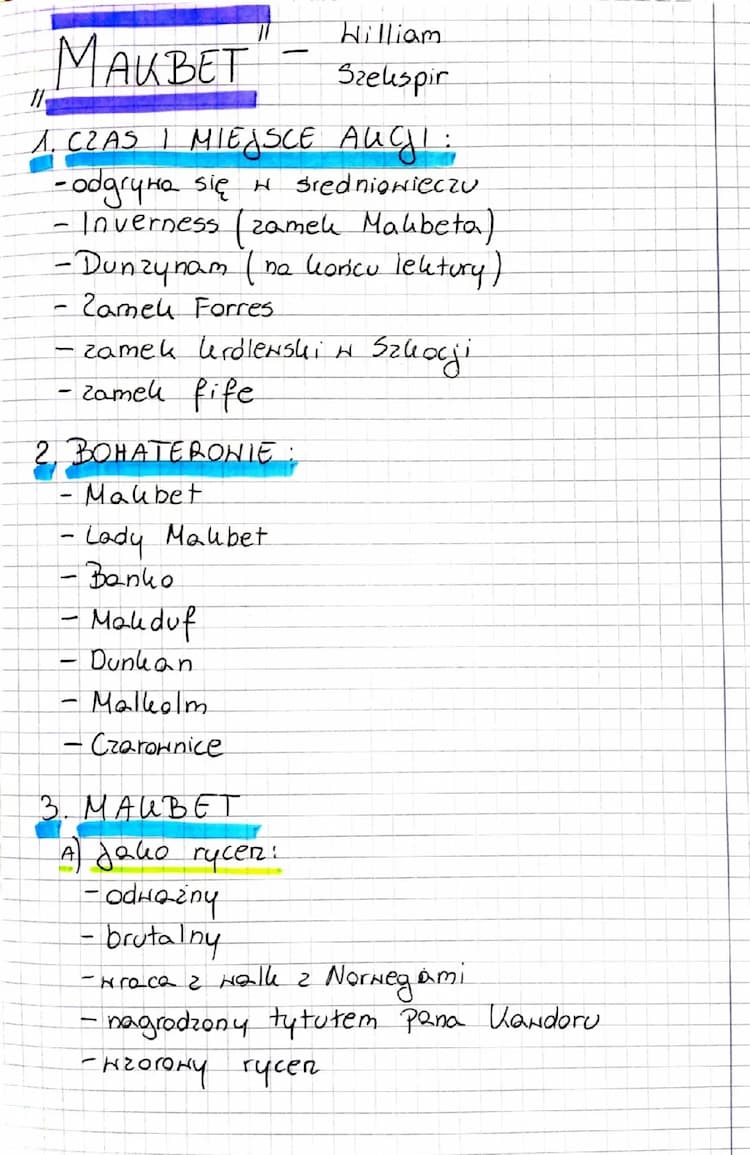 „MAKBET” – William
Szekspir
1. CZAS I MIEJSCE AKCJI:
- odgrywa się w średniowieczu
- Inverness (zamek Makbeta)
- Dunzynam (na końcu lektury)
- Zamek Forres
- zamek królewski w Szkocji
- zamek fife
2. BOHATEROWIE:
- Makbet
- Lady Makbet
- Banko
- Makduf
- Dunkan
- Malkolm
- Czarownice
3. MAKBET
A) jako rycerz:
- odważny
- brutalny
- wraca z walk z Norwegami
- nagrodzony tytułem pana Kawdoru
- wzorowy rycerz